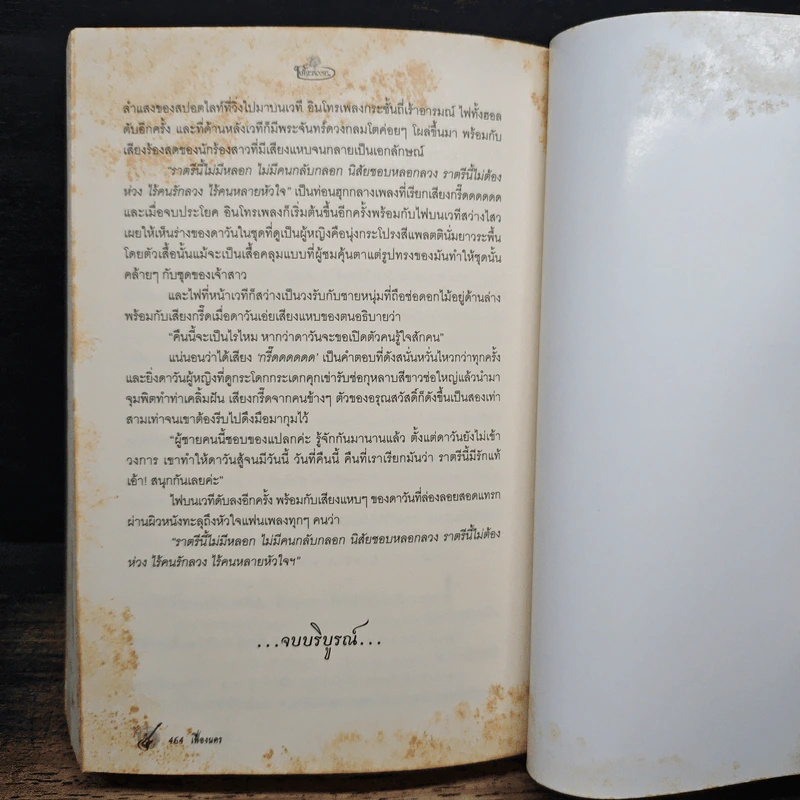 ลำแสงของสปอตไลท์ที่วิ่งไปมาบนเวที อินโทรเพลงกระชั้นถี่เร้าอารมณ์ ไฟทั้งฮอล
ดับอีกครั้ง และที่ด้านหลังเวทีก็มีพระจันทร์ดวงกลมโตค่อยๆ โผล่ขึ้นมา พร้อมกับ
เสียงร้องสดของนักร้องสาวที่มีเสียงแหบจนกลายเป็นเอกลักษณ์
“ราตรีนี้ไม่มีหลอก ไม่มีคนกลับกลอก นิสัยชอบหลอกลวง ราตรีนี้ไม่ต้อง
ห่วง ไร้คนรักลวง ไร้คนหลายหัวใจ” เป็นท่อนฮุกกลางเพลงที่เรียกเสียงกรี๊ดดดดดด
และเมื่อจบประโยค อินโทรเพลงก็เริ่มต้นขึ้นอีกครั้งพร้อมกับไฟบนเวทีสว่างไสว
เผยให้เห็นร่างของดาวันในชุดที่ดูเป็นผู้หญิงคือนุ่งกระโปรงสีแพลตตินั่มยาวระพื้น
โดยตัวเสื้อนั้นแม้จะเป็นเสื้อคลุมแบบที่ผู้ชมคุ้นตาแต่รูปทรงของมันทำให้ชุดนั้น
คล้ายๆ กับชุดของเจ้าสาว
และไฟที่หน้าเวทีก็สว่างเป็นวงรับกับชายหนุ่มที่ถือช่อดอกไม้อยู่ด้านล่าง
พร้อมกับเสียงกรี๊ดเมื่อดาวันเอ่ยเสียงแหบของตนอธิบายว่า
“คืนนี้จะเป็นไรไหม หากว่าดาวันจะขอเปิดตัวคนรู้ใจสักคน”
แน่นอนว่าได้เสียง ‘กรี๊ดดดดดด’ เป็นคำตอบที่ดังสนั่นหวั่นไหวกว่าทุกครั้ง
และยิ่งดาวันผู้หญิงที่ดูกระโดกกระเดกคุกเข่ารับช่อกุหลาบสีขาวช่อใหญ่แล้วนำมา
จุมพิตทำท่าเคลิ้มฝัน เสียงกรี๊ดจากคนข้างๆ ตัวของอรุณสวัสดิ์ก็ดังขึ้นเป็นสองเท่า
สามเท่าจนเขาต้องรีบไปดึงมือมากุมไว้
“ผู้ชายคนนี้ชอบของแปลกค่ะ รู้จักกันมานานแล้ว ตั้งแต่ดาวันยังไม่เข้า
วงการ เขาทำให้ดาวันสู้จนมีวันนี้ วันที่คืนนี้ คืนที่เราเรียกมันว่า ราตรีนี้มีรักแท้
เอ้า! สนุกกันเลยค่ะ”
ไฟบนเวทีดับลงอีกครั้ง พร้อมกับเสียงแหบๆ ของดาวันที่ล่องลอยสอดแทรก
ผ่านผิวหนังทะลุถึงหัวใจแฟนเพลงทุกๆ คนว่า
“ราตรีนี้ไม่มีหลอก ไม่มีคนกลับกลอก นิสัยชอบหลอกลวง ราตรีนี้ไม่ต้อง
ห่วง ไร้คนรักลวง ไร้คนหลายหัวใจฯ”
...จบบริบูรณ์...
464 เฟื่องนคร